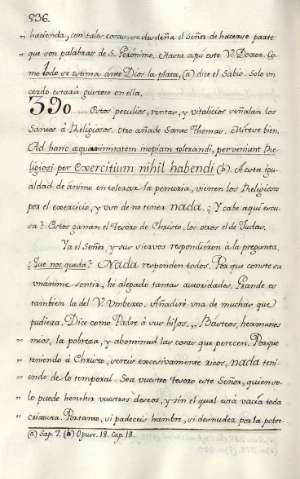 536.
hacienda, con tales corazones desdeña el Señor de hacerse parte
que son palabras de S. Gerónimo. Hasta aquí este V. Doctor. Co-
mo lodo se estima ante Dios la plata, (a) dice el Sabio. Solo un
cerdo estará gustoso en ella.
390 .... Estos peculios, rentas, y vitalicios señalan los
Santos á Religiosos. Otro añade Santo Thomas. Mirese bien.
Ad hanc aequanimitatem inopiam tolerandi, perveniunt Re-
ligiosi per Exercitium nihil habendi (b). A esta igu-
aldad de ánimo en tolerar la penuria, vienen los Religiosos
por el exercicio, y uso de no tener nada. ¿Y cabe aquí escu-
sa? Estos ganan el tesoro de Christo, los otros el de Judas.
Ya el Señor, y sus siervos respondieron á la pregunta,
¿Que nos queda? Nada responden todos. Para que conste su
unánime sentir, he alegado tantas autoridades. Grande es
tambien la del V. Umberto. Añadiré una de muchas que
pudiera. Dice como Padre á sus hijos. „ Básteos, hermanos
„ mios, la pobreza, y abominad las cosas que perecen. Porque
„ teniendo á Christo, sereis excesivamente ricos, nada teni-
„ endo de lo temporal. Sea vuestro tesoro este Señor, quien so-
„ lo puede henchir vuestros deseos, y sin el qual está vacía toda
„ criatura. Portanto, si padeceis hambre, si desnudez por la pobre-
(a) Sap. 7. (b) Opusc. 18. Cap. 18.